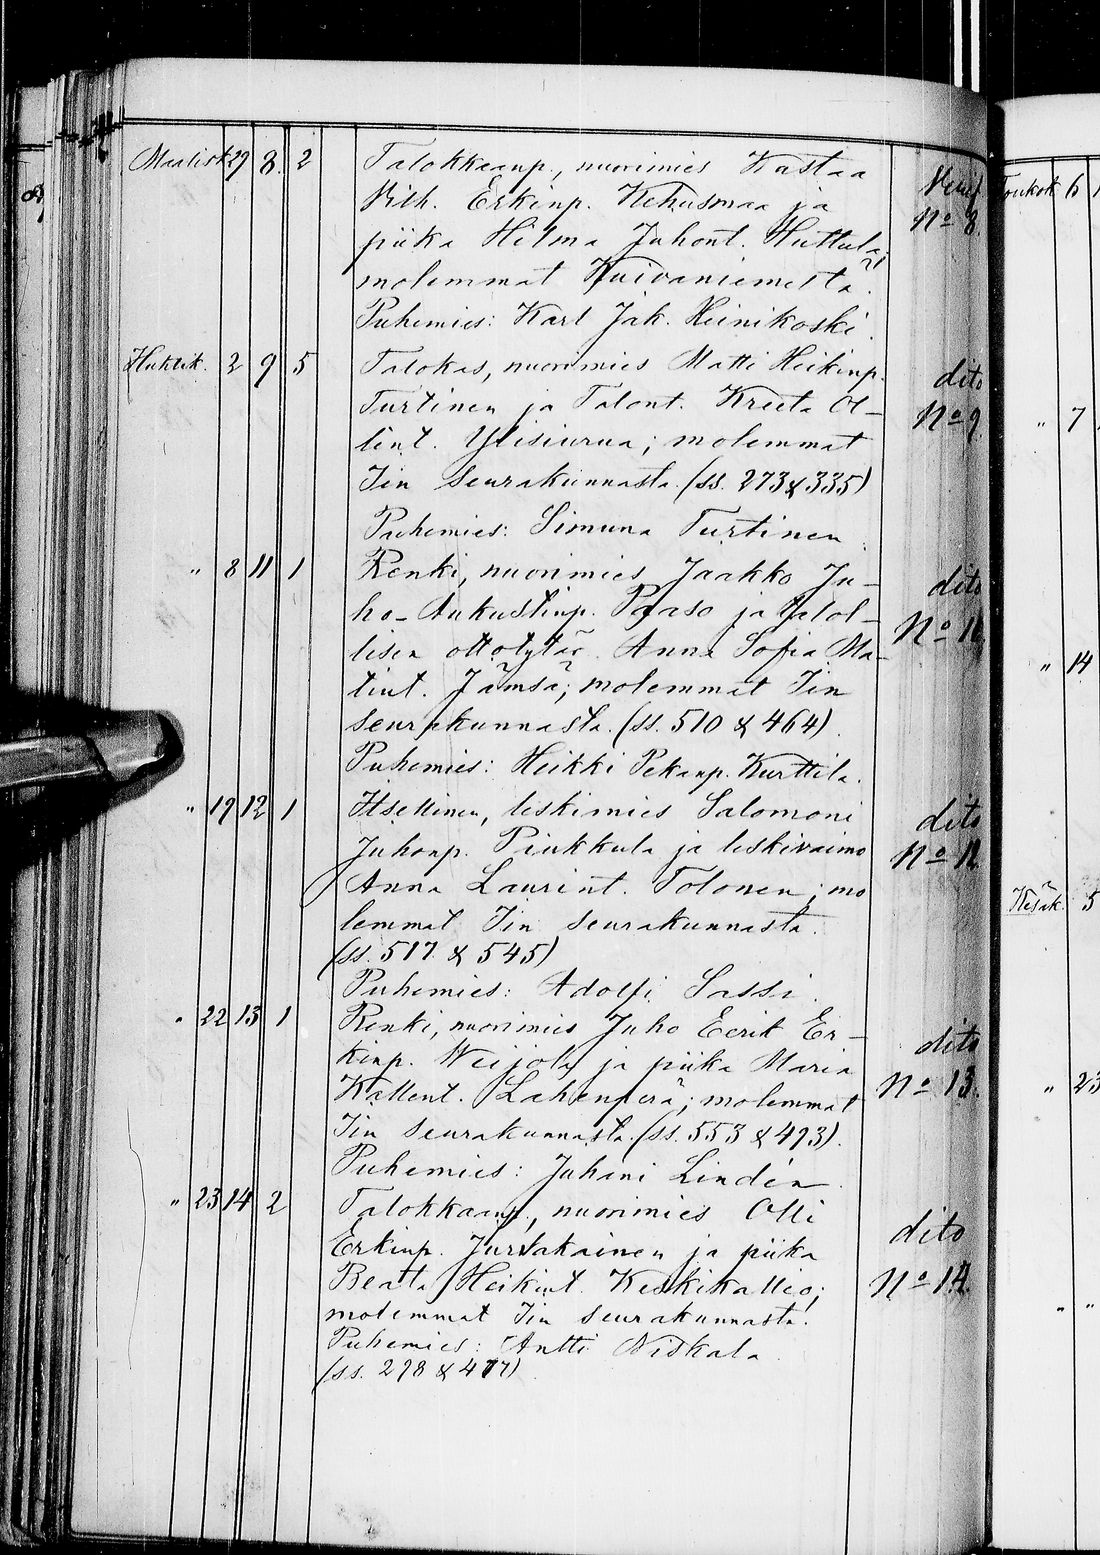 Maalisk. 29 8. 2 Talokkaanp., nuorimies Kustaa Verif.
Vilh. Erkinp. Kehusmaa ja No 8.
piika Hilma Juhont. Huttula;
molemmat Kuivaniemeltä.
Puhemies: Karl Jak. Heinikoski.
Huhtik. 2 9 5 Talokas, nuorimies Matti Heikinp. dito
Turtinen ja Talont. Kreeta Ol- No 9.
lint. Ylisiurua; molemmat
Iin seurakunnasta. (ss. 273 & 335)
Puhemies: Simuna Turtinen.
" 8 11 1 Renki, nuorimies Jaakko Ju- dito
ho-Aukustinp. Paaso ja talol- No 11.
lisen ottotytär Anna Sofia Ma-
tint. Jämsä; molemmat Iin
seurakunnasta. (ss. 510 & 464).
Puhemies: Heikki Pekanp. Kurttila.
" 19 12 1 Itsellinen, leskimies Salomoni dito
Juhonp. Pinkkula ja leskivaimo No 12.
Anna Laurint. Tolonen; mo
lemmat Iin seurakunnasta.
(ss. 517 & 545)
Puhemies: Adolfi Sassi.
" 22 13 1 Renki, nuorimies Juho Eerik Er- dito
kinp. Weijola ja piika Maria No 13.
Kallent. Lahenperä; molemmat
Iin seurakunnasta. (ss. 553 & 493).
Puhemies: Juhani Lindén.
" 23 14 2 Talokkaanp., nuorimies Olli dito
Erkinp. Jurvakainen ja piika
Beata Heikint. Keskikallio; No 14.
molemmat Iin seurakunnasta.
Puhemies: Antti
(ss. 298 & 477).
Toukok. 6
" 7
" 14
Kesäk. 5
" 23
" "